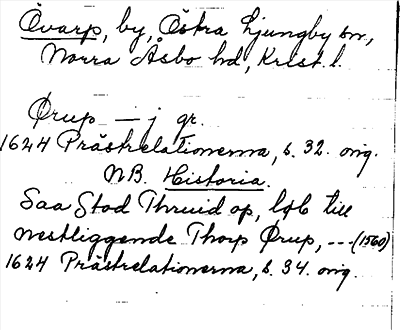 Övarp, by, Östra Ljungby sn,
Norra Åsbo hd, Krist. l.
Ørup — j gr.
1624 Prästrelationerna, s. 32. orig.
NB. Historia.
Saa Stod Thruid op, løb till
nestliggende Thorp Ørup, --- (1560)
1624 Prästrelationerna, s. 34. orig.